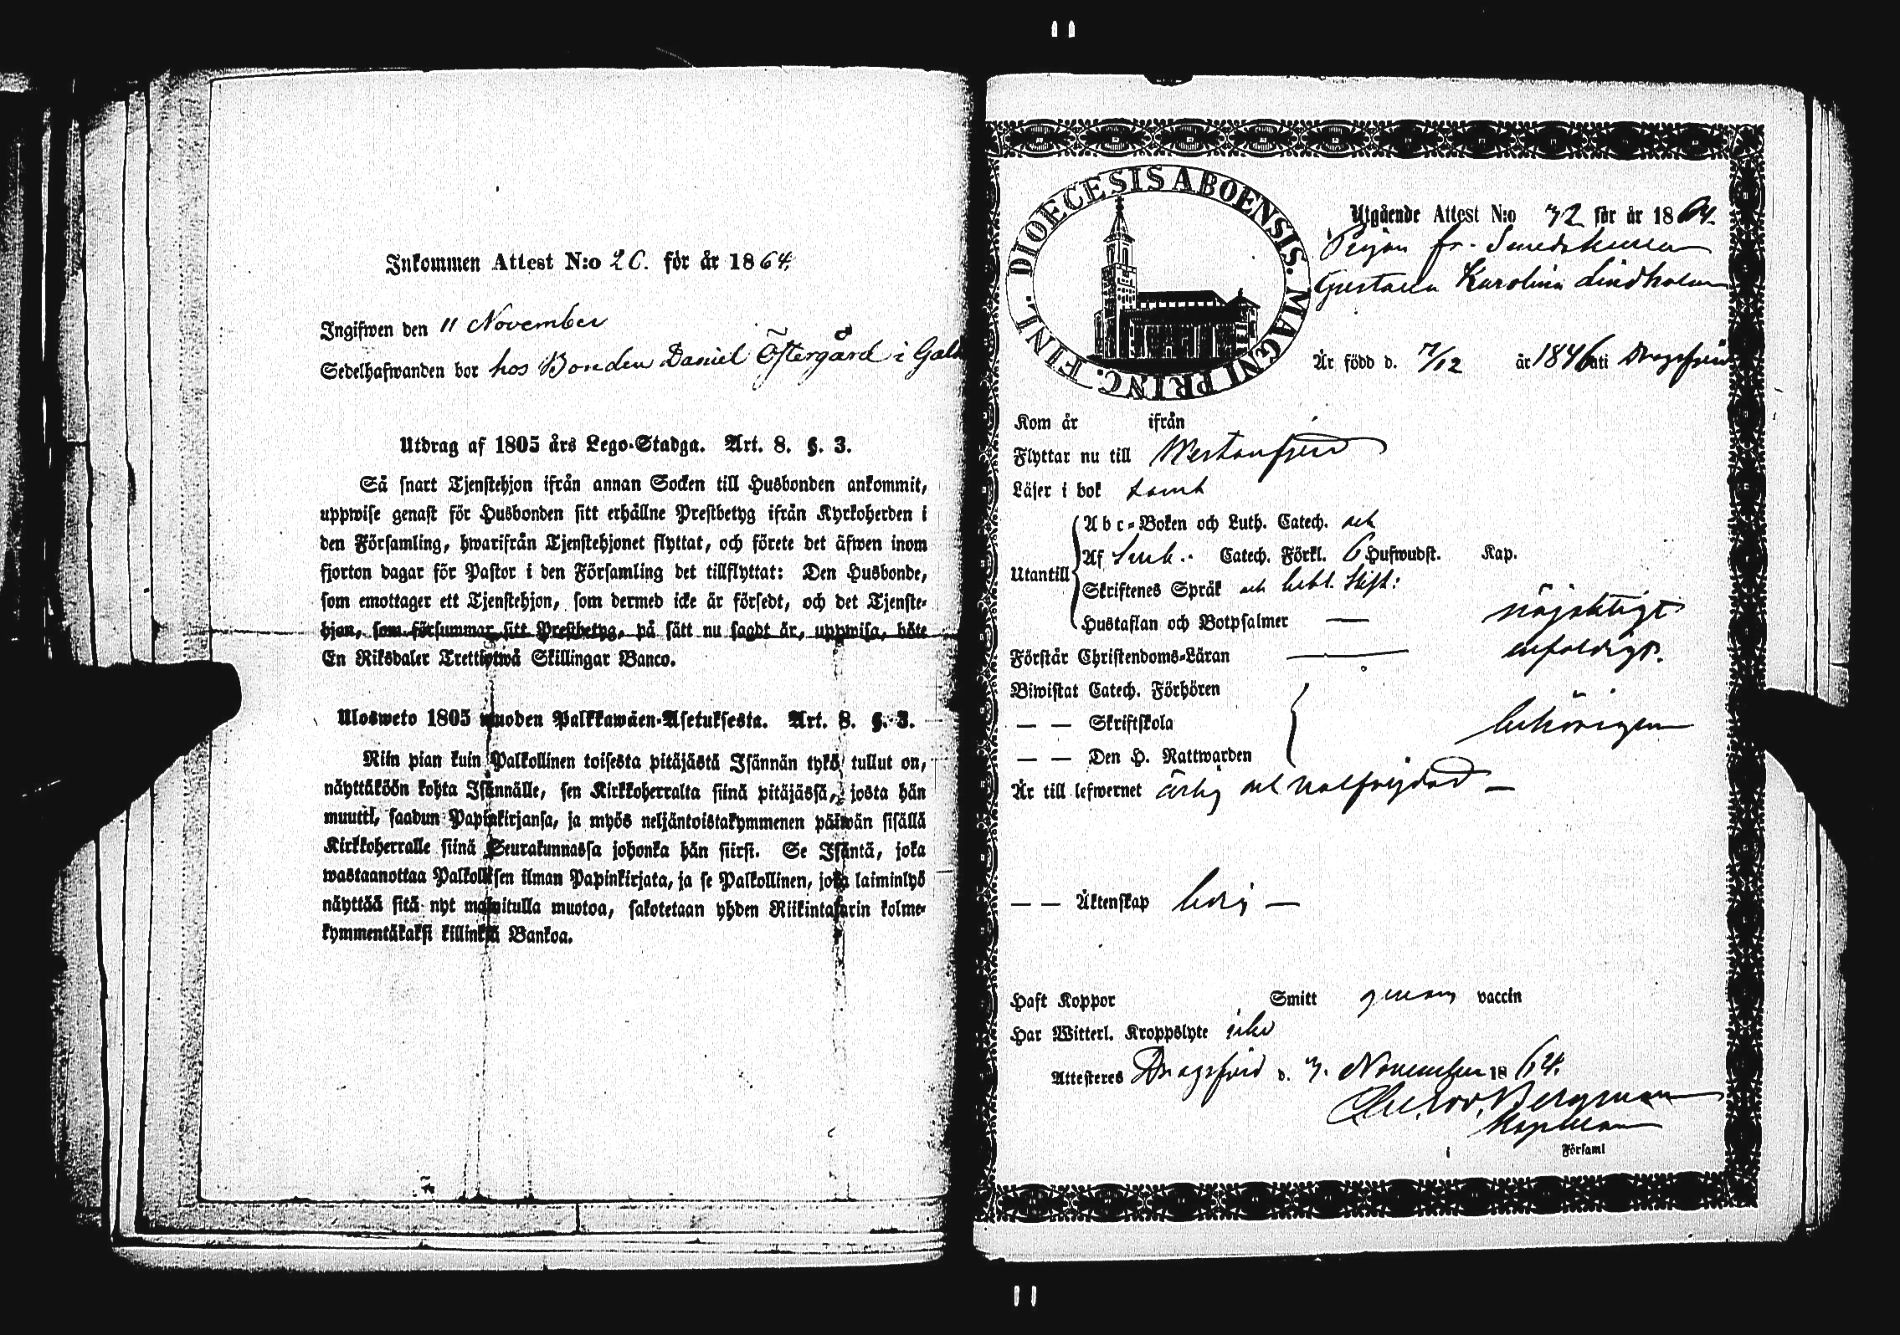 Inkommen Attest N:o 20. för år 1864.
Ingifwen den 11 November
Sedelhafwanden bor hos Bonden Daniel Östergård i Galt
Utdrag af 1805 års Lego-Stadga. Art. 8. §. 3.
Så snart Tjenstehjon ifrån annan Socken till Husbonden ankommit,
uppwise genast för Husbonden sitt erhållne Prestbetyg ifrån Kyrkoherden i
den Församling, hwarifrån Tjenstehjonet flyttat, och förete det äfwen inom
fjorton dagar för Pastor i den Församling det tillflyttat: Den Husbonde,
som emottager ett Tjenstehjon, som dermed icke är försedt, och det Tjenste-
hjon, som försummar sitt Prestbetyg, på sätt nu sagdt är, uppwisa, böte
En Riksdaler Trettiotwå Skillingar Banco.
Ulosweto 1805 wuoden Palkkawäen-Asetuksesta. Art. 8. §. 3.
Niin pian kuin Palkollinen toisesta pitäjästä Isännän tykö tullut on,
näyttäköön kohta Isännälle, sen Kirkkoherralta siinä pitäjässä, josta hän
muutti, saadun Papinkirjansa, ja myös neljäntoistakymmenen päiwän sisällä
Kirkkoherralle siinä Seurakunnassa johonka hän siirsi. Se Isäntä, joka
wastaanottaa Palkollisen ilman Papinkirjata, ja se Palkollinen, joka laiminlyö
näyttää sitä nyt mainitulla muotoa, sakotetaan yhden Riikintalarin kolme-
kymmentäkaksi killinkiä Bankoa.
DIOECESIS ABOENSIS. MAGNI PRINC. FINL.
Utgående Attest N:o 72 för år 1864.
Pigan fr. Smedskulla
Gustava Karolina Lindholm
Är född d. 7/12 år 1846 uti Dragsfjerd
Kom år ifrån
Flyttar nu till Westanfjerd
Läser i bok samt
Utantill
Abc-Boken och Luth. Catech. och
Af Sveb. Catech. Förkl. 6 Hufwudst. Kap.
Skriftenes Språk och bibl. Hist:
Hustaflan och Botpsalmer — nöjaktigt
Förstår Christendoms-Läran — enfaldigt.
Biwistat Catech. Förhören
— — Skriftskola behörigen
— — Den H. Nattwarden
Är till lefwernet ärlig och välfrejdad —
— — Äktenskap ledig —
Haft Koppor Smitt genom vaccin
Har Witterl. Kroppslyte icke
Attesteres Dragsfjerd d. 7. November 1864.
Bergman
Kapellan
i Församl